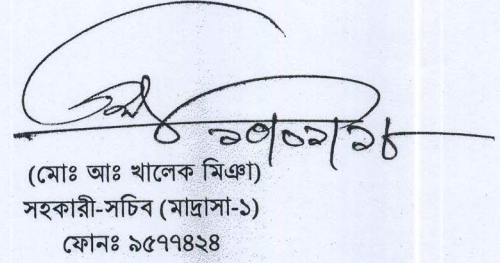 ১৩/০২/১৮
(মোঃ আঃ খালেক মিঞা)
সহকারী-সচিব (মাদ্রাসা-১)
ফোনঃ ৯৫৭৭৪২৪